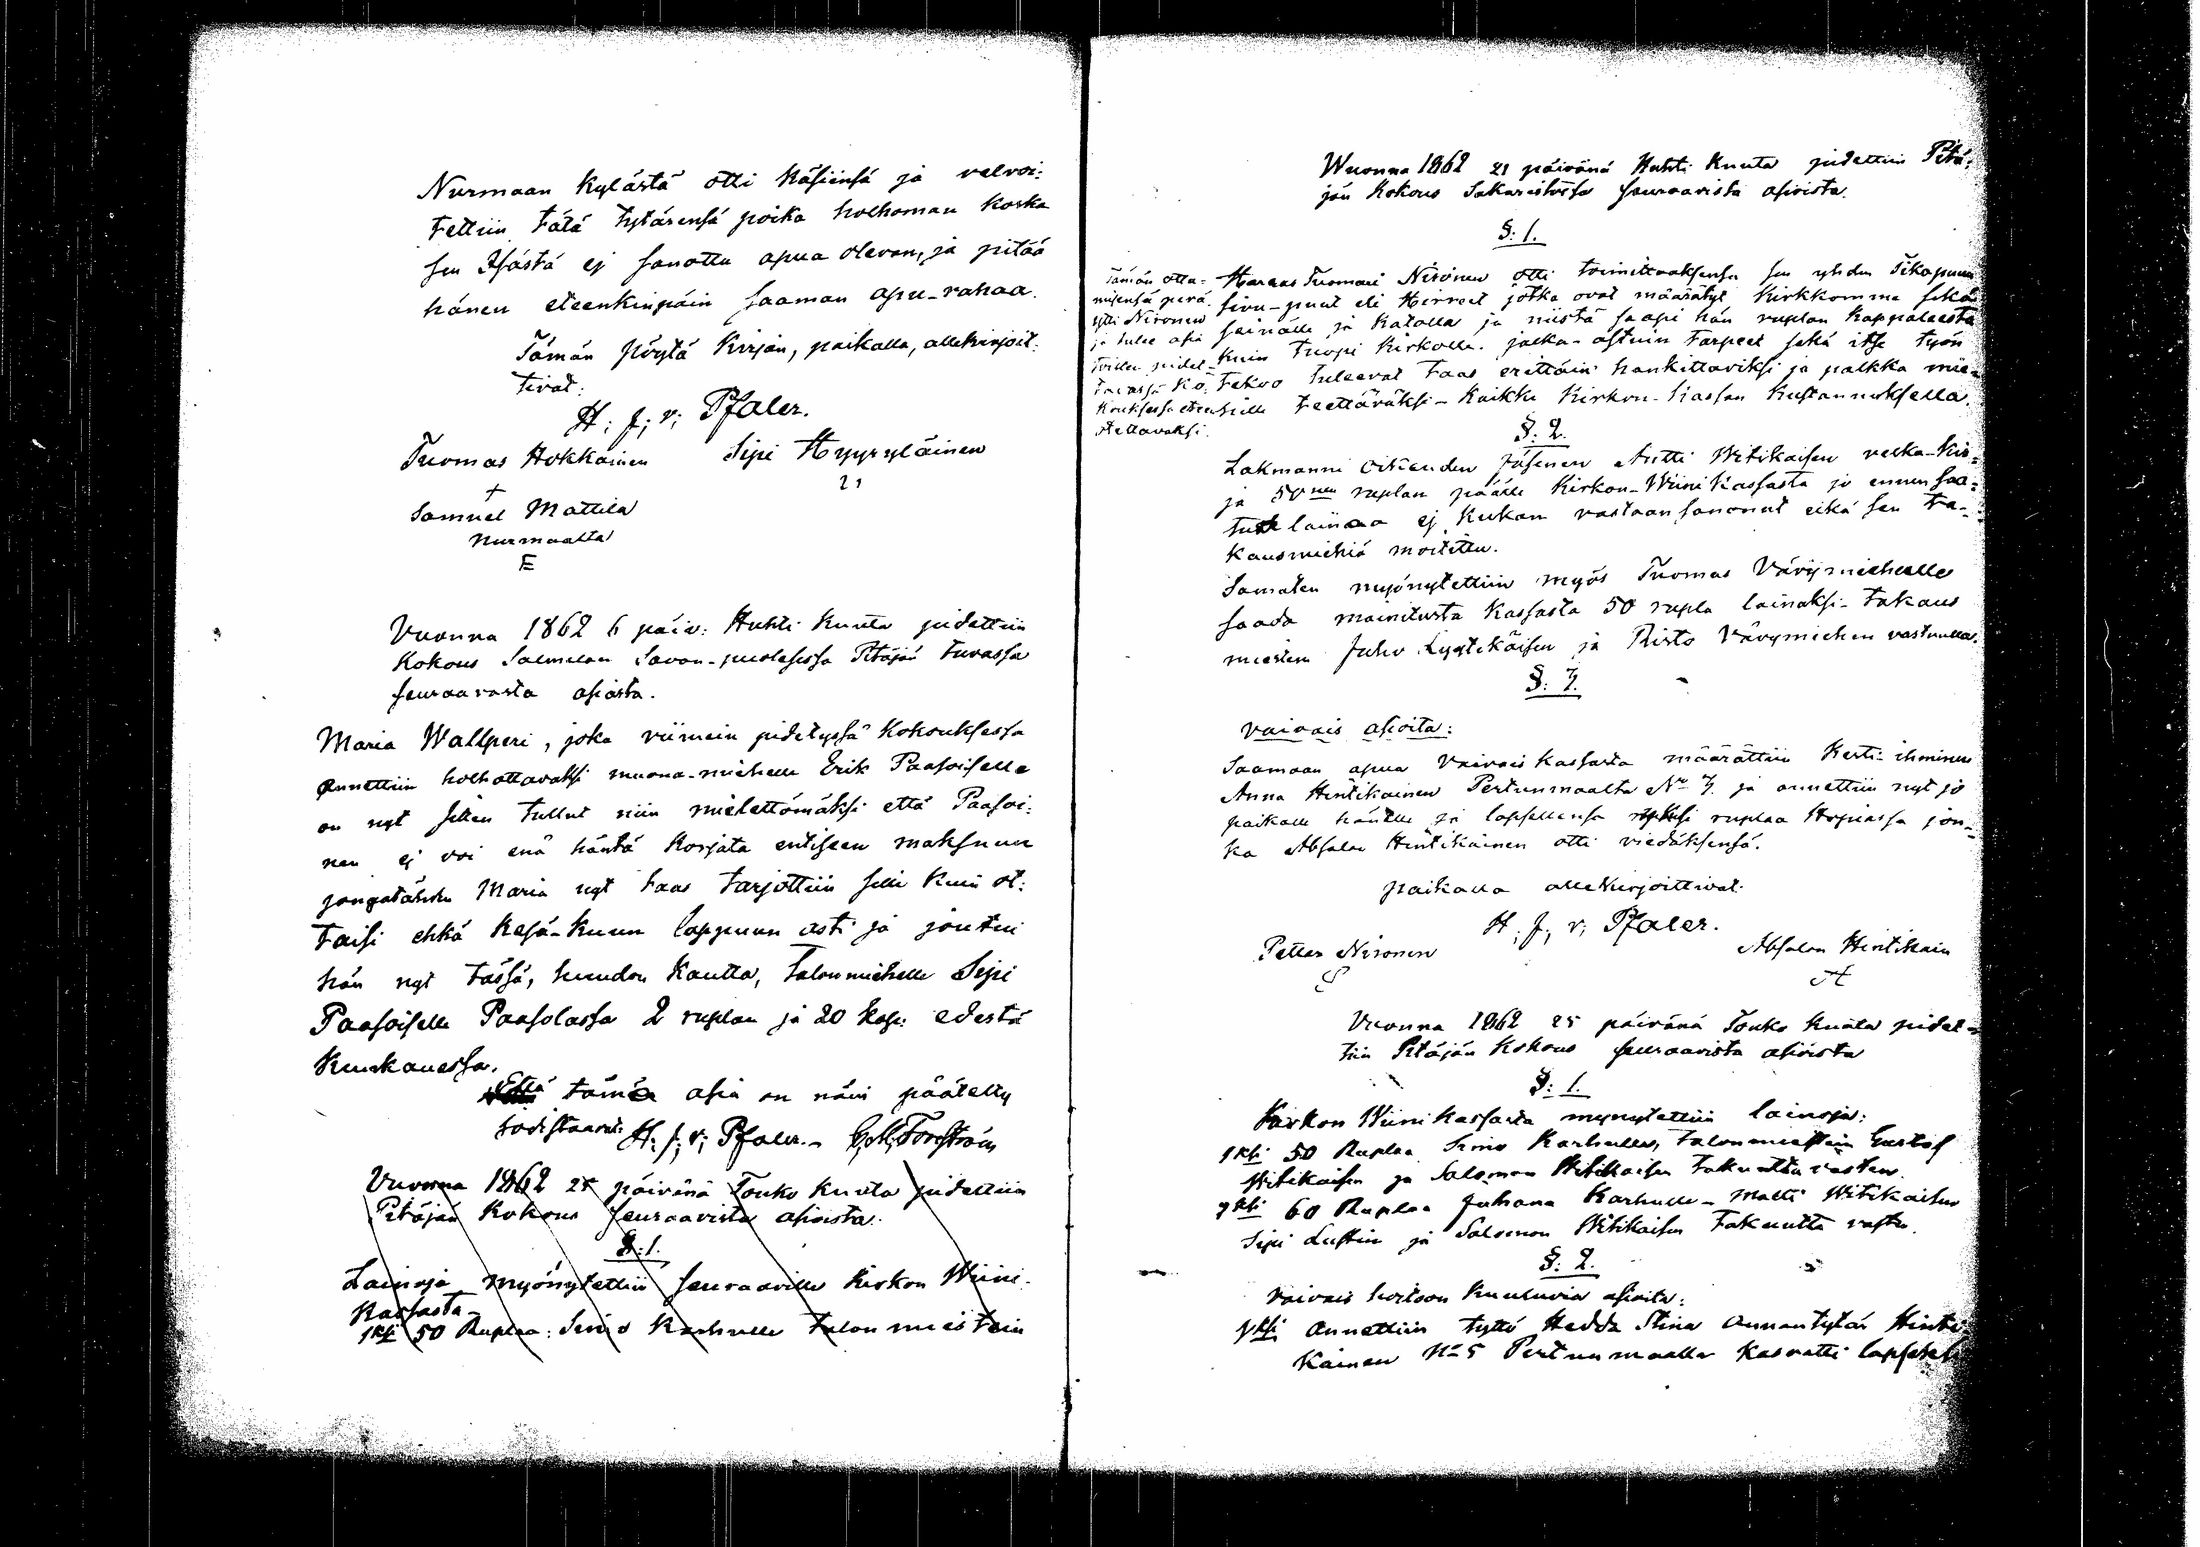 Nurmaan kylästä otti käsiinsä ja velvoi:
tettiin tätä tytärensä poika holhoman koska
sen Isästä ej sanottu apua olevan, ja pitää
hänen eteenkinpäin saaman apu-rahaa.
Tämän pöytä kirjan, paikalla, allekirjoit:
tivat:
H: f: v: Pfaler.
Tuomas Hokkainen Sipi Hyyryläinen
Samuel Mattila
Nurmaalta
Vuonna 1862 6 päiv: Huhti kuuta pidettiin
kokous Salmelan Savon-puolesessa Pitäjän tuvassa
seuraavasta asiasta.
Maria Wallperi, joka viimein pidetyssä kokouksessa
annettiin holhottavaksi muona-miehelle Erik Paasoiselle
on nyt sitten tullut niin mielettömäksi että Paasoi:
nen ej voi enä häntä korjata entiseen maksuun
jongatähden Maria nyt taas tarjottiin sille kuin ot:
taisi ehkä kesä-kuun loppuun asti ja joutui
hän nyt tässä, huudon kautta, talonmiehelle Sipi
Paasoiselle Paasolassa 2 ruplan ja 20 kop: edestä
kuukauessa.
Että tämä asia on näin päätetty
todistaavat: H: f: v: Pfaler.- G. M. Forsström
Vuonna 1862 25 päivänä Touko kuuta pidettiin
Pitäjän kokous seuraavista asioista.
§: 1.
Lainoja myönytettiin seuraaville kirkon Wiini-
kassasta
1ksi 50 Ruplaa: Simo Karhulle talon miestein
Wuonna 1862 21 päivänä Huhti kuuta pidettiin Pitä:
jän kokous Sakaristossa seuraavista asioista.
§: 1.
Tämän otta-
misensa perä
ytti Nironen
ja tulee asia
toillen pidet-
tavassa ko:
kouksessa eteen
otettavaksi.
Haraas Tuomari Nironen otti toimittaaksensa sen yhden Tikapuun
sivu-puut eli Hirret jotka ovat määrätyt kirkkomme sekä
seinälle ja katolle ja niistä saapi hän ruplan kappaleesta
kuin tuopi kirkolle. jalka-astuin tarpeet sekä itse työn
tekoo tuleevat taas erittäin hankittaviksi ja palkka mie-
hille teettäväksi - kaikki kirkon-kassan kustannuksella.
§: 2.
Lakmanni oikeuden jäsenen Antti Witikaisen velka-kir:
ja 50nen ruplan päälle kirkon-Wiini kassasta jo ennen saa:
tusta lainaa ej kukan vastaan sanonut eikä sen ta-
kausmiehiä moitittu.
Samaten myönytettiin myös Tuomas Värijmiehelle
saada mainitusta kassasta 50 rupla lainaksi - takaus
miesten Juho Lyytikäisen ja Risto Värymiehen vastuulla.
§: 3.
vaivais asioita:
Saamaan apua vaivais kassasta määrättiin kesti-ihminen
Anna Hintikainen Pertunmaalta No 7. ja annettiin nyt jo
paikalle hänelle ja lapsellensa ruplaa Hopiassa jon-
ka Absalon Hintikainen otti viedäksensä.
paikalla alle kirjoittivat:
H: f: v: Pfaler.
Petter Nironen Absalon Hintikain
Vuonna 1862 25 päivänä Touko kuuta pidet-
tiin Pitäjän kokous seuraavista asioista
§: 1.
Kirkon Wiini kassasta myönytettiin lainoja:
1ksi 50 Ruplaa Simo Karhulle, talonmiestein Gustaf
Witikaisen ja Salomon Witikaisen takuutta vasten.
2ksi 60 Ruplaa Juhana Karhulle - Matti Witikaisen
Sipi Lustin ja Salomon Witikaisen takuutta vasten.
§: 2.
Vaivais hoitoon kuuluvia asioita:
1ksi annettiin tyttö Hedda Stina Annantytär Hinti
kainen No 5 Pertunmaalla kasvatti lapseksi